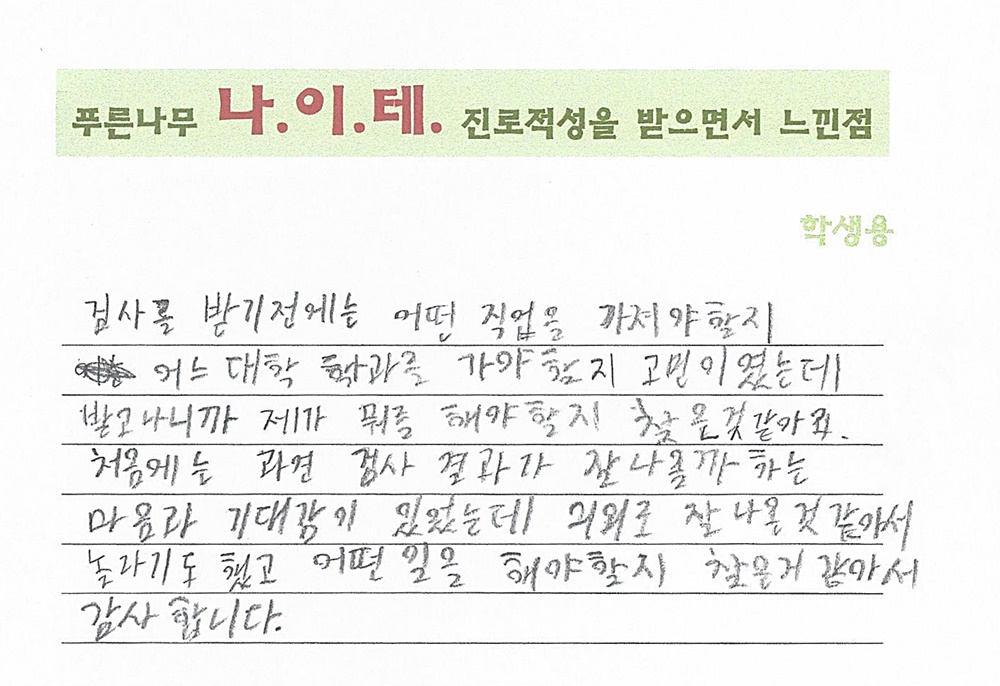 푸른나무 나.이.테. 진로적성을 받으면서 느낀점
학생용
검사를 받기전에는 어떤 직업을 가져야할지
어느대학 학과를 가야할지 고민이였는데
받고나니까 제가 뭐를 해야할지 찾은것같아요.
처음에는 과연 검사 결과가 잘나올까 하는
마음과 기대감이 있었는데 의외로 잘나온것같아서
놀라기도 했고 어떤일을 해야할지 찾은거 같아서
감사합니다.